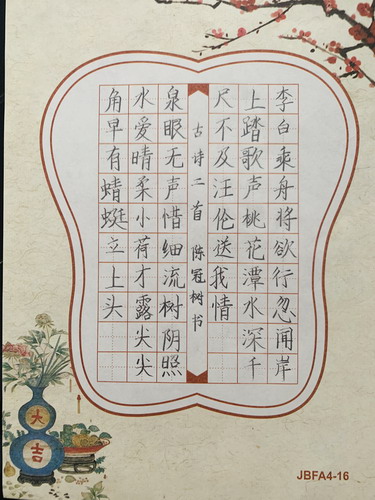 李白乘舟将欲行忽闻岸
上踏歌声桃花潭水深千
尺不及汪伦送我情
古诗二首 陈冠树书
泉眼无声惜细流树阴照
水爱晴柔小荷才露尖尖
角早有蜻蜓立上头
大吉
JBFA4-16